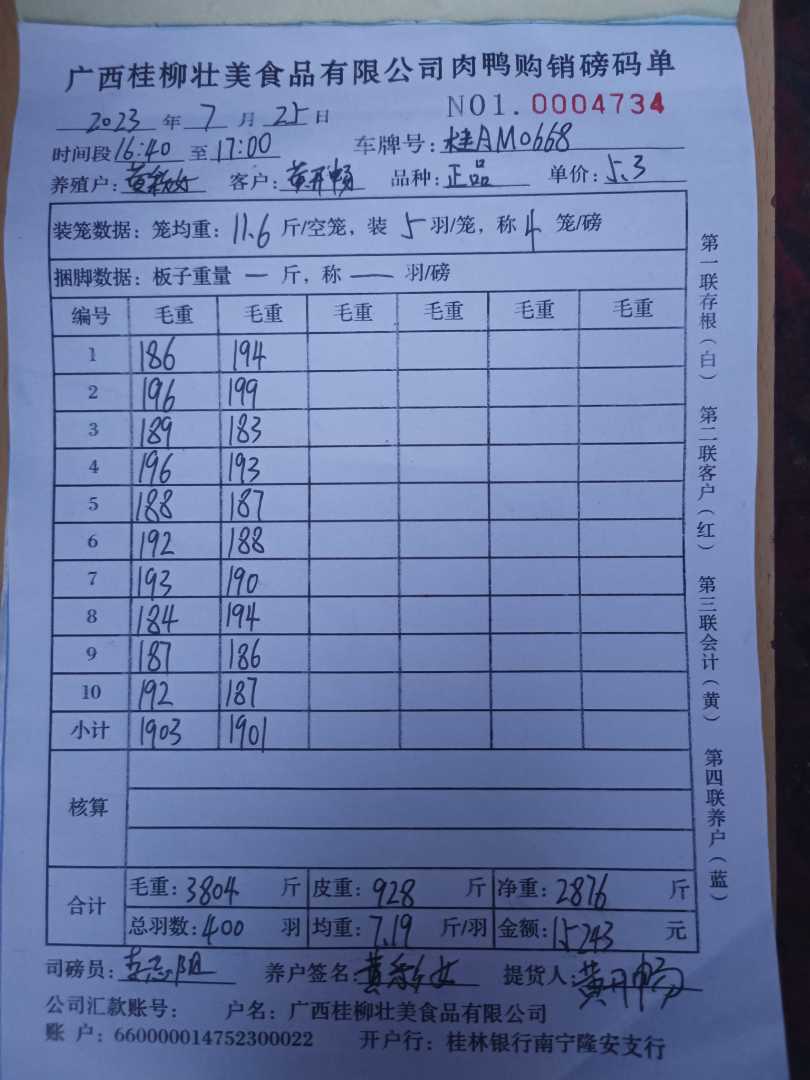 广西桂柳壮美食品有限公司肉鸭购销磅码单
2023 年 7 月 25 日 NO1. 0004734
时间段 16:40 至 17:00 车牌号: 桂AM0668
养殖户: 黄 女 客户: 黄开畅 品种: 正品 单价: 5.3
装笼数据: 笼均重: 11.6 斤/空笼, 装 5 羽/笼, 称 4 笼/磅
捆脚数据: 板子重量 一 斤, 称 — 羽/磅
编号 毛重 毛重 毛重 毛重 毛重 毛重
1 186 194
2 196 199
3 189 183
4 196 193
5 188 187
6 192 188
7 193 190
8 184 194
9 187 186
10 192 187
小计 1903 1901
核算
合计 毛重: 3804 斤 皮重: 928 斤 净重: 2876 斤
总羽数: 400 羽 均重: 7.19 斤/羽 金额: 15243 元
司磅员: 李志阳 养户签名: 黄 女 提货人: 黄开畅
公司汇款账号: 户名: 广西桂柳壮美食品有限公司
账 户: 660000014752300022 开户行: 桂林银行南宁隆安支行
第一联存根(白) 第二联客户(红) 第三联会计(黄) 第四联养户(蓝)